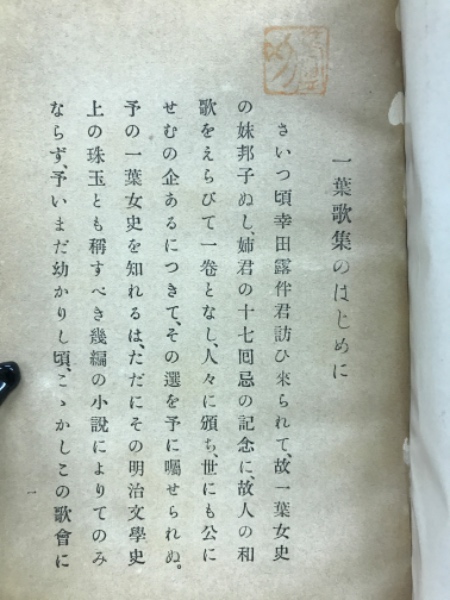 一葉歌集のはじめに
さいつ頃幸田露伴君訪ひ來られて、故一葉女史
の妹邦子ぬし、姉君の十七囘忌の記念に、故人の和
歌をえらびて一卷となし、人々に頒ち、世にも公に
せむの企あるにつきて、その選を予に囑せられぬ。
予の一葉女史を知れるは、ただにその明治文學史
上の珠玉とも稱すべき幾編の小說によりてのみ
ならず、予いまだ幼かりし頃、こゝかしこの歌會に
一